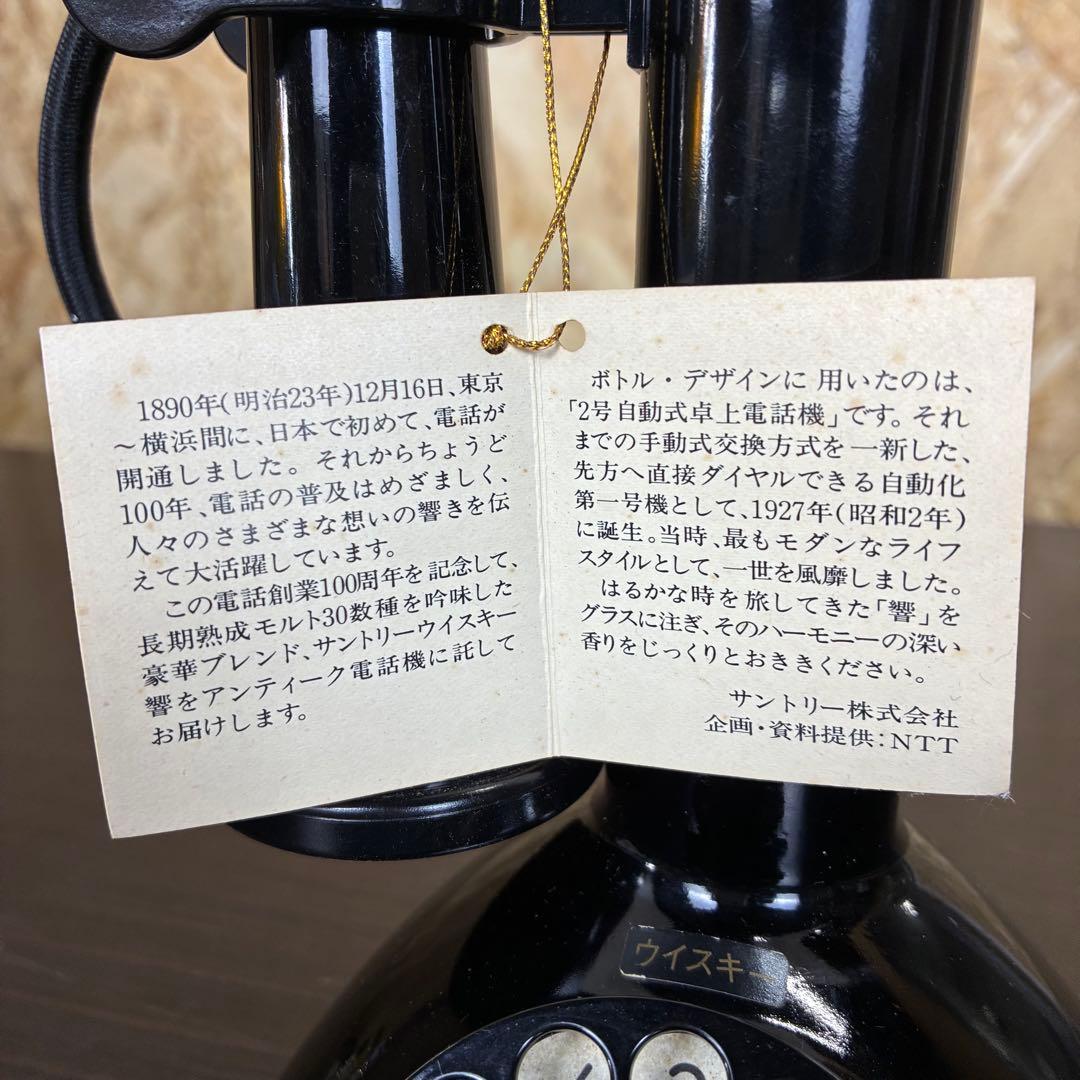 1890年(明治23年)12月16日、東京
～横浜間に、日本で初めて、電話が
開通しました。それからちょうど
100年、電話の普及はめざましく、
人々のさまざまな想いの響きを伝
えて大活躍しています。
この電話創業100周年を記念して、
長期熟成モルト30数種を吟味した
豪華ブレンド、サントリーウイスキー
響をアンティーク電話機に託して
お届けします。
ボトル・デザインに用いたのは、
「2号自動式卓上電話機」です。それ
までの手動式交換方式を一新した、
先方へ直接ダイヤルできる自動化
第一号機として、1927年(昭和2年)
に誕生。当時、最もモダンなライフ
スタイルとして、一世を風靡しました。
はるかな時を旅してきた「響」を
グラスに注ぎ、そのハーモニーの深い
香りをじっくりとおききください。
サントリー株式会社
企画・資料提供：NTT
ウイスキー